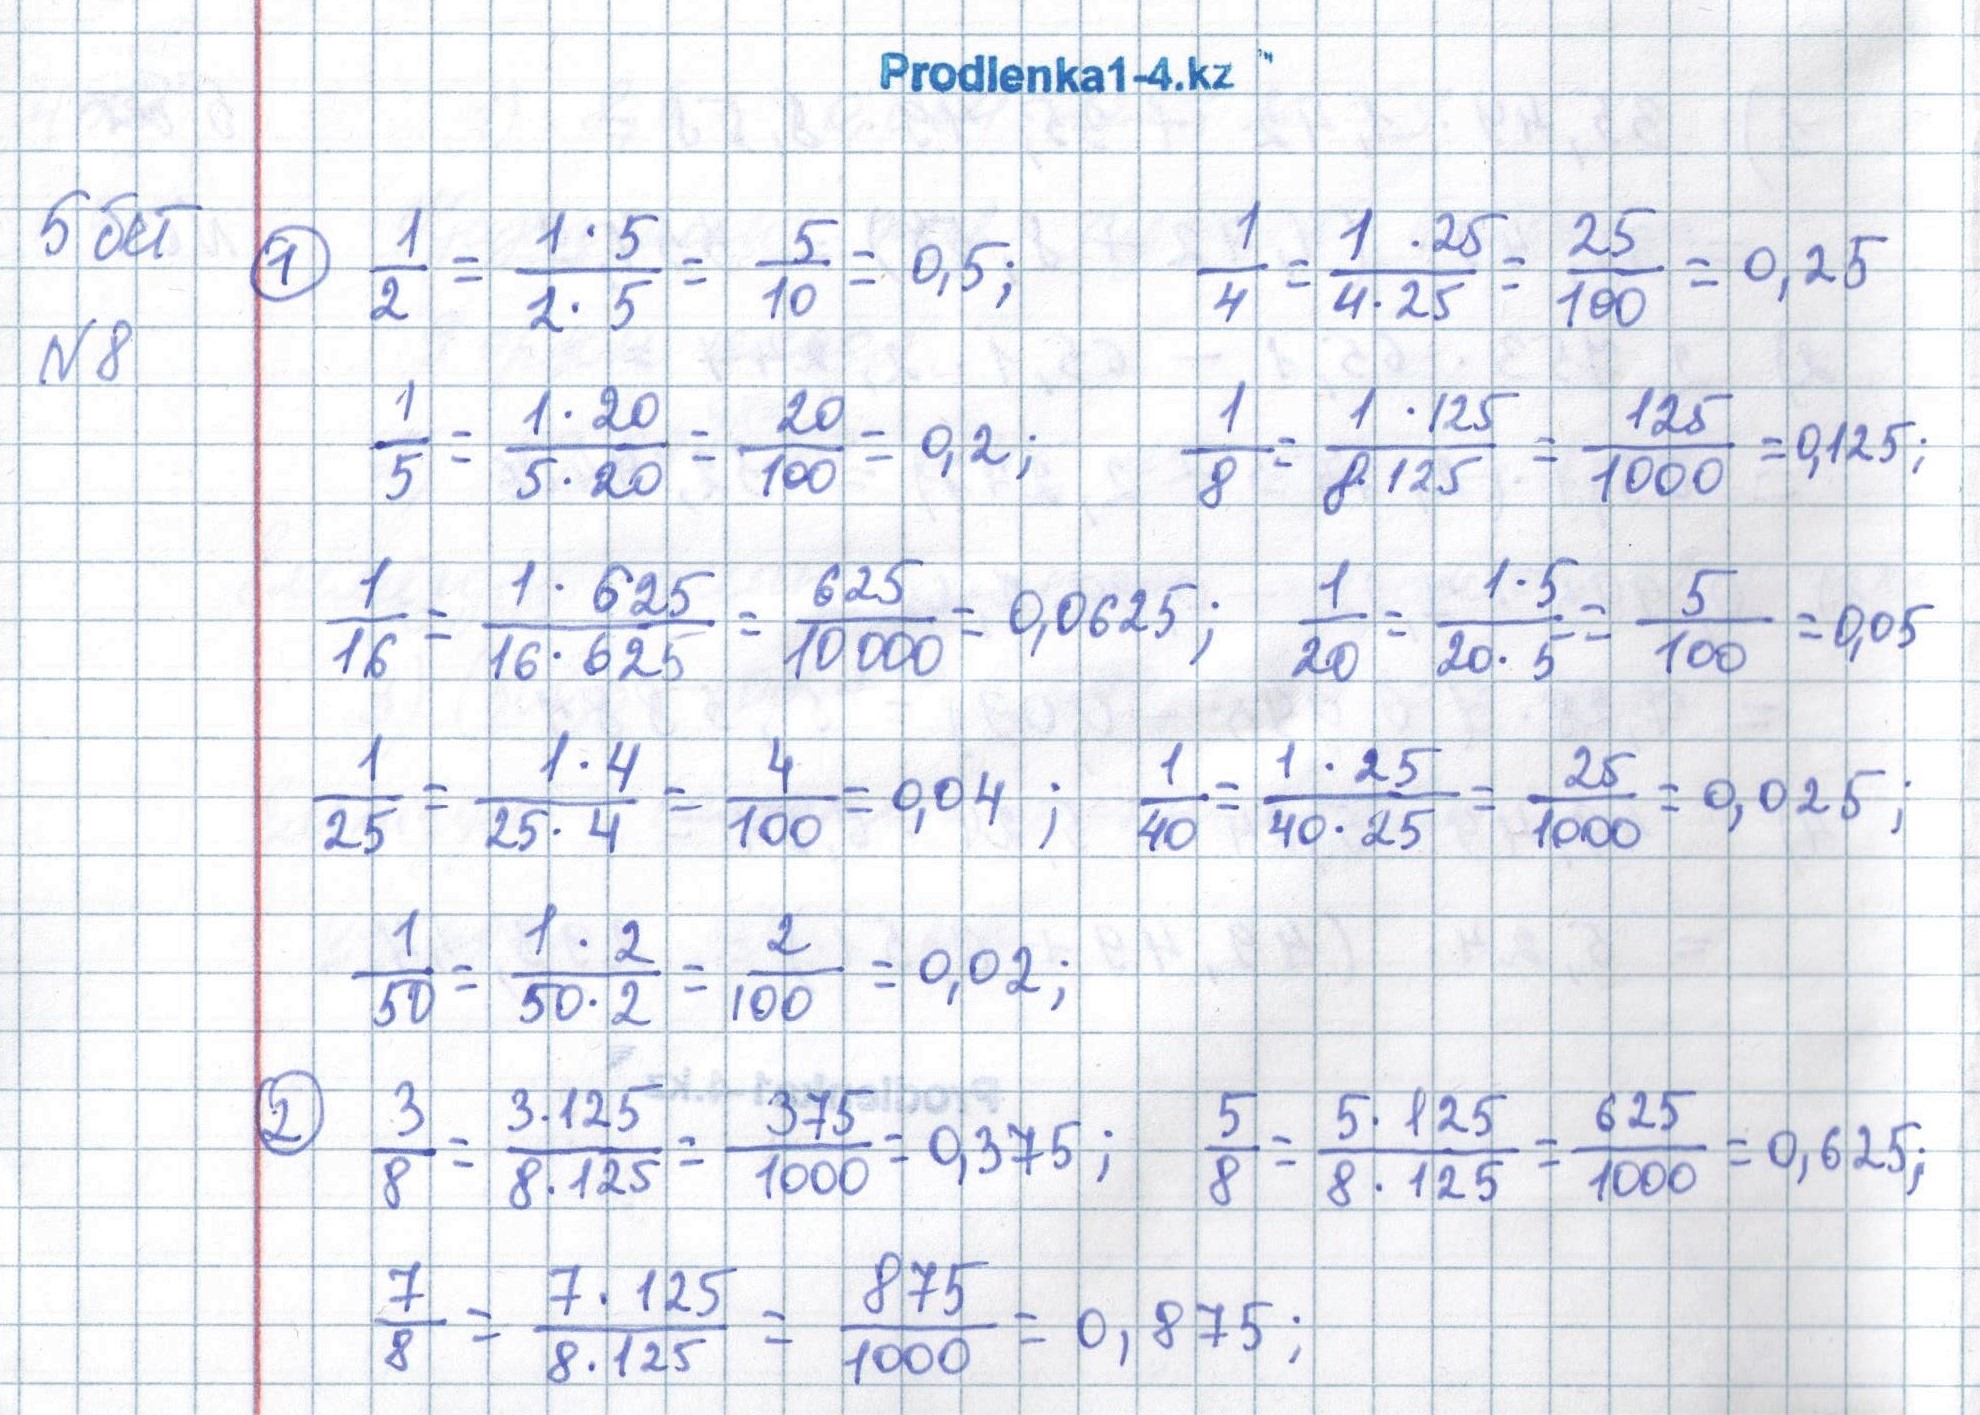 Prodlenka1-4.kz
5 бет
① 1/2 = 1·5/2·5 = 5/10 = 0,5; 1/4 = 1·25/4·25 = 25/100 = 0,25
№8
1/5 = 1·20/5·20 = 20/100 = 0,2; 1/8 = 1·125/8·125 = 125/1000 = 0,125;
1/16 = 1·625/16·625 = 625/10000 = 0,0625; 1/20 = 1·5/20·5 = 5/100 = 0,05
1/25 = 1·4/25·4 = 4/100 = 0,04; 1/40 = 1·25/40·25 = 25/1000 = 0,025;
1/50 = 1·2/50·2 = 2/100 = 0,02;
② 3/8 = 3·125/8·125 = 375/1000 = 0,375; 5/8 = 5·125/8·125 = 625/1000 = 0,625;
7/8 = 7·125/8·125 = 875/1000 = 0,875;